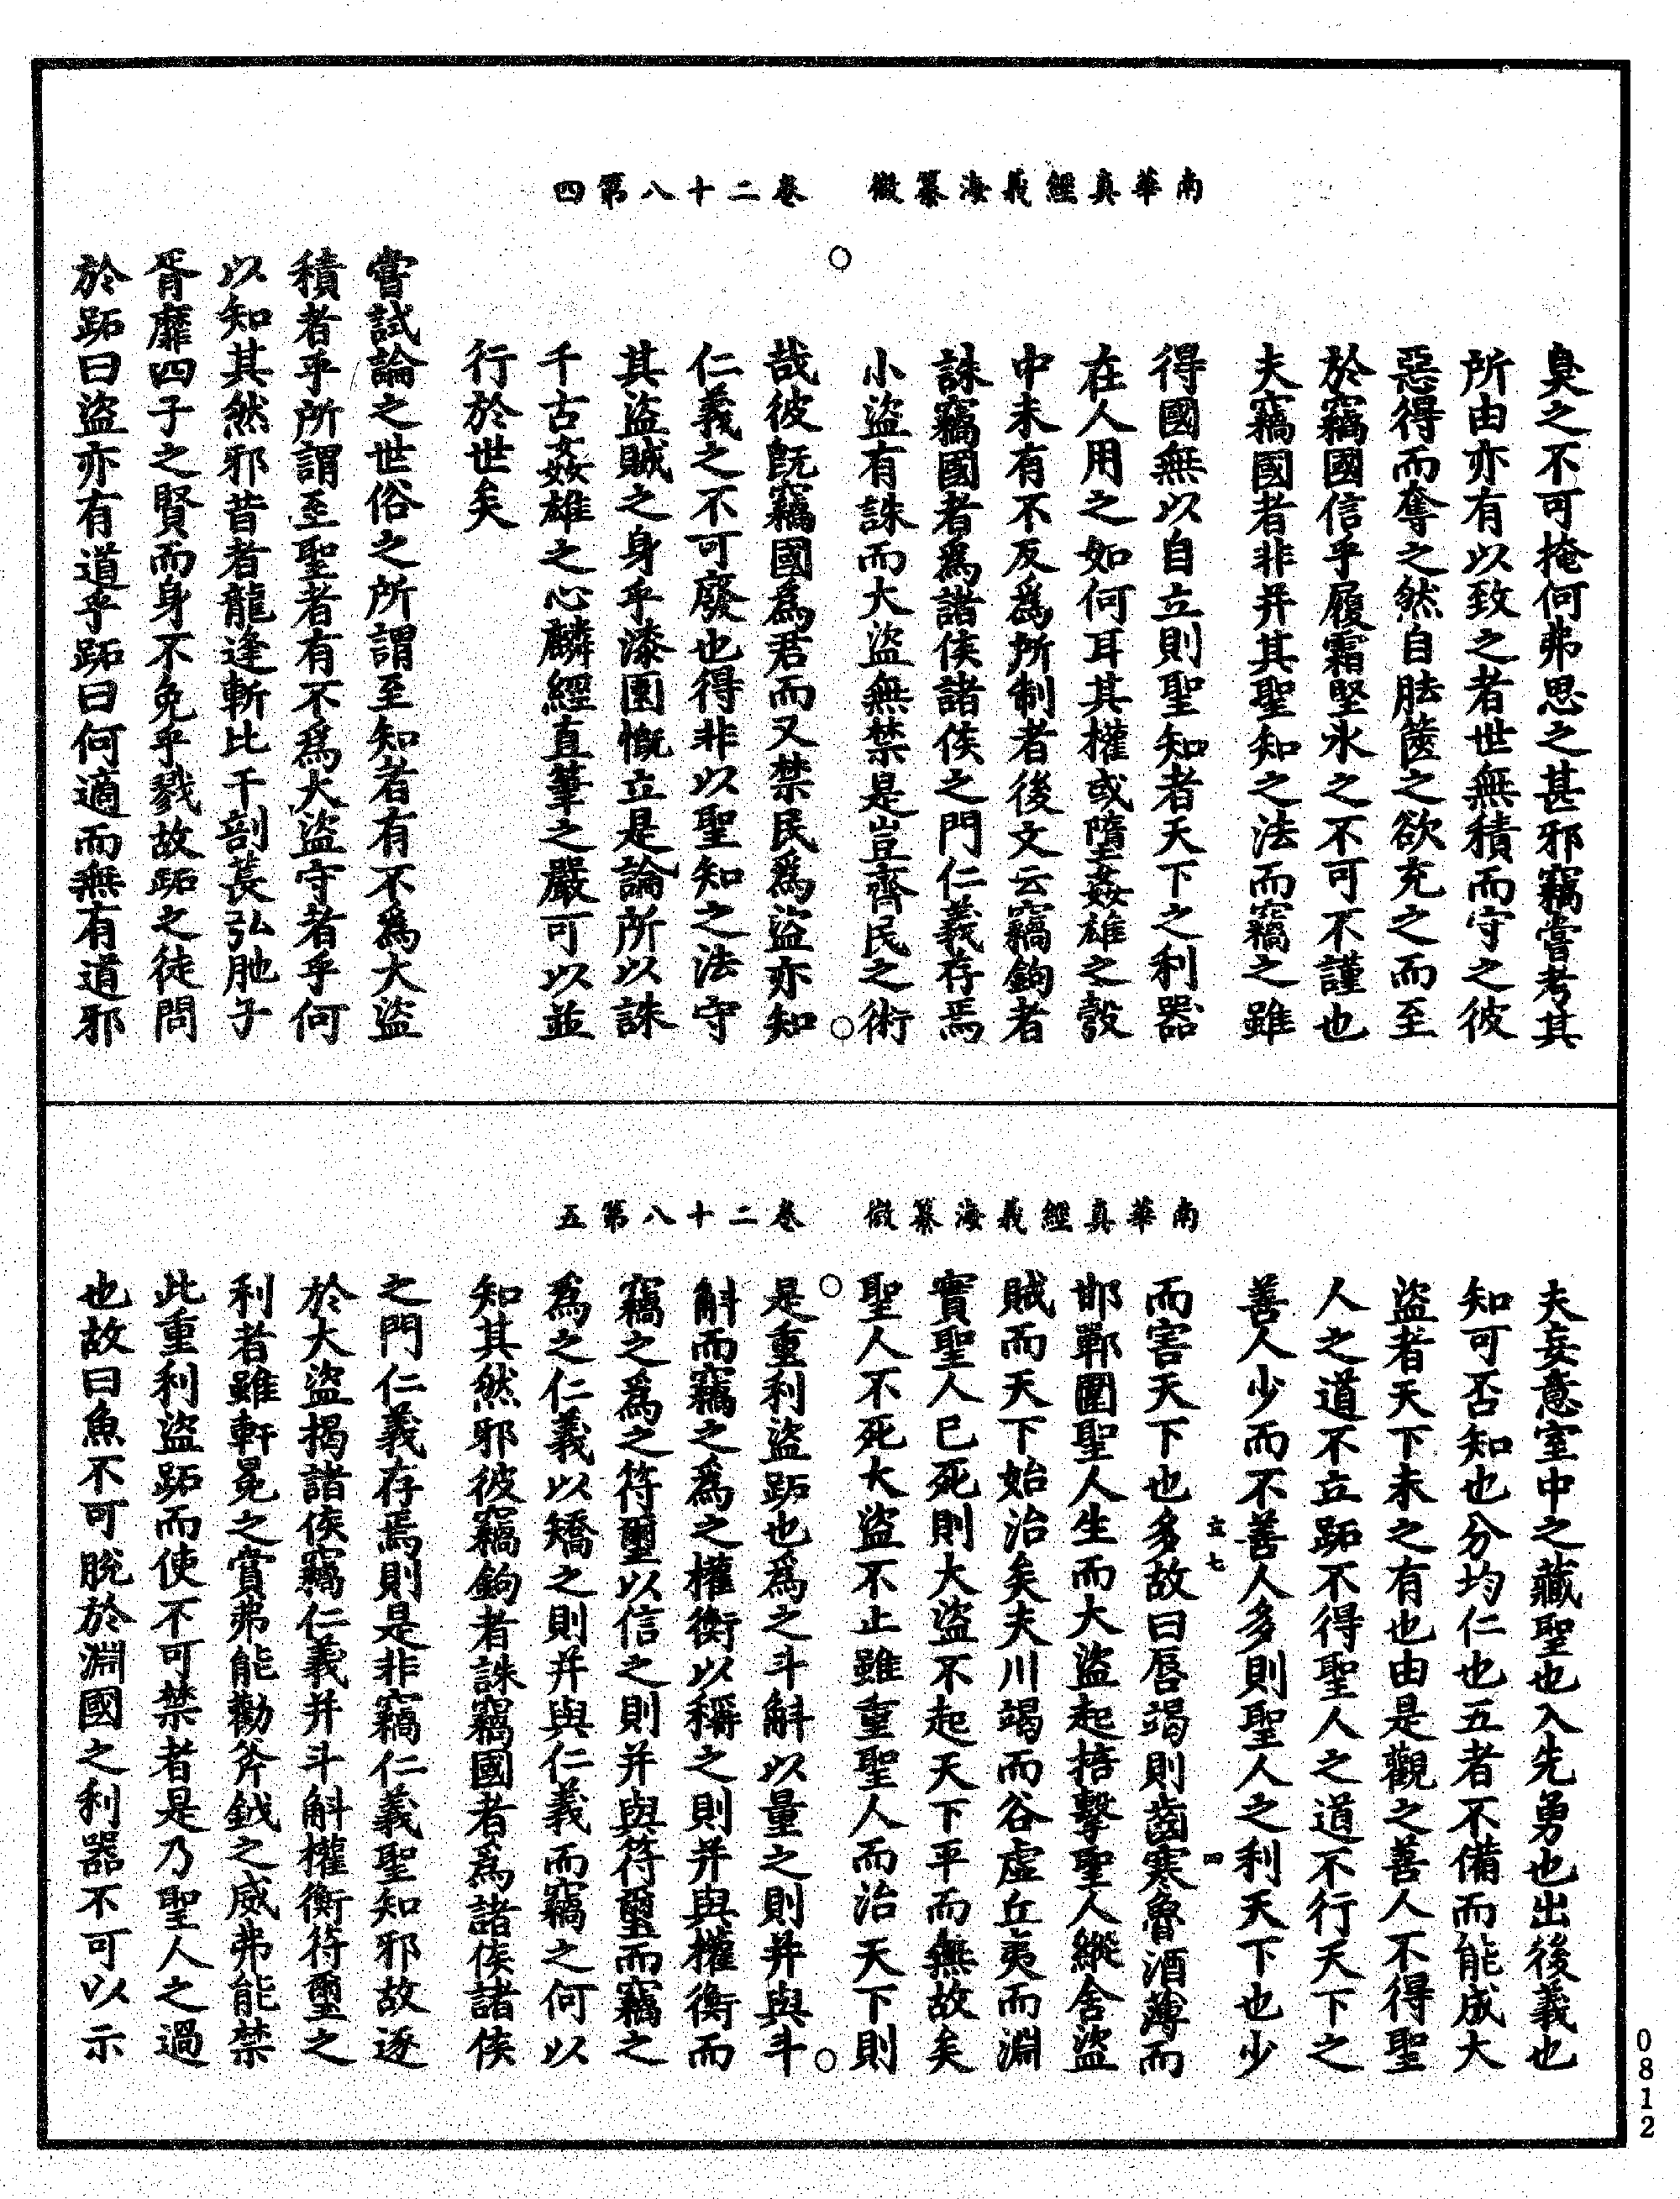 南華真經義海纂微　卷二十八第四
臭之不可掩何弗思之甚邪竊嘗考其
所由亦有以致之者世無積而守之彼
惡得而奪之然自胠篋之欲充之而至
於竊國信乎履霜堅氷之不可不謹也
夫竊國者非并其聖知之法而竊之雖
得國無以自立則聖知者天下之利器
在人用之如何耳其權或墮姦雄之彀
中未有不反爲所制者後文云竊鉤者
誅竊國者爲諸侯諸侯之門仁義存焉
小盜有誅而大盜無禁是豈齊民之術
哉彼既竊國爲君而又禁民爲盜亦知
仁義之不可廢也得非以聖知之法守
其盜賊之身乎漆園慨立是論所以誅
千古姦雄之心麟經直筆之嚴可以並
行於世矣
嘗試論之世俗之所謂至知者有不爲大盜
積者乎所謂至聖者有不爲大盜守者乎何
以知其然邪昔者龍逢斬比干剖萇弘胣子
胥靡四子之賢而身不免乎戮故跖之徒問
於跖曰盜亦有道乎跖曰何適而無有道邪
南華真經義海纂微　卷二十八第五
夫妄意室中之藏聖也入先勇也出後義也
知可否知也分均仁也五者不備而能成大
盜者天下未之有也由是觀之善人不得聖
人之道不立跖不得聖人之道不行天下之
善人少而不善人多則聖人之利天下也少
而害天下也多故曰唇竭則齒寒魯酒薄而
邯鄲圍聖人生而大盜起掊擊聖人縱舍盜
賊而天下始治矣夫川竭而谷虛丘夷而淵
實聖人已死則大盜不起天下平而無故矣
聖人不死大盜不止雖重聖人而治天下則
是重利盜跖也爲之斗斛以量之則并與斗
斛而竊之爲之權衡以稱之則并與權衡而
竊之爲之符璽以信之則并與符璽而竊之
爲之仁義以矯之則并與仁義而竊之何以
知其然邪彼竊鉤者誅竊國者爲諸侯諸侯
之門仁義存焉則是非竊仁義聖知邪故逐
於大盜揭諸侯竊仁義并斗斛權衡符璽之
利者雖軒冕之賞弗能勸斧鉞之威弗能禁
此重利盜跖而使不可禁者是乃聖人之過
也故曰魚不可脫於淵國之利器不可以示
0812